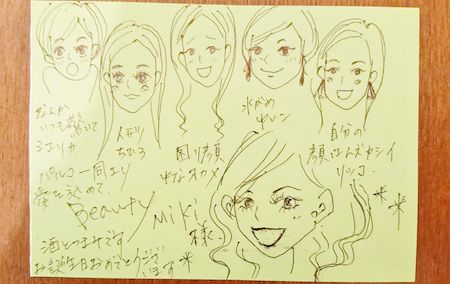 なんか
いつも驚いて
るエリカ
人妻ツ
ちひろ
困り顔
中なオカメ
水がめ
ゆン
自分の
顔はムズカシイ
リツコ
パルコ一同より
愛を込めて
Beauty Miki 様く
酒とつまみです
お誕生日おめでとうござ
います